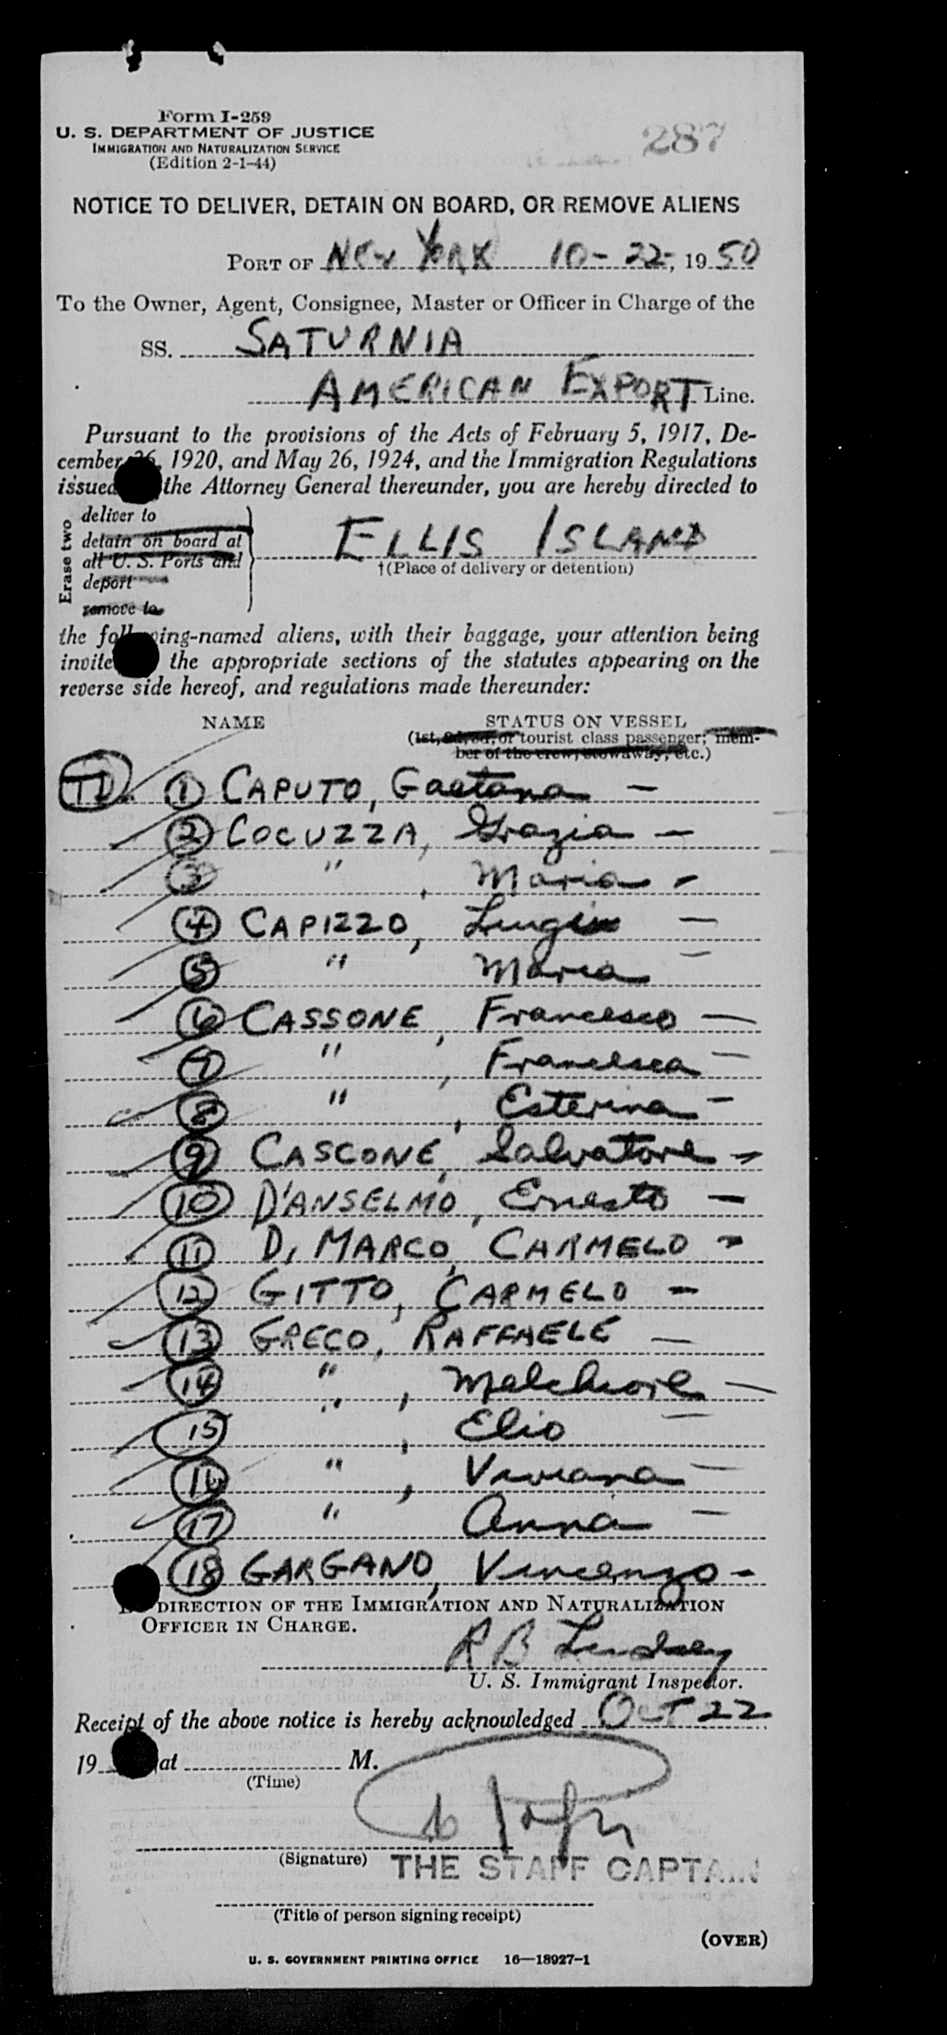 Form I-259
U. S. DEPARTMENT OF JUSTICE
IMMIGRATION AND NATURALIZATION SERVICE
(Edition 2-1-44)
287
NOTICE TO DELIVER, DETAIN ON BOARD, OR REMOVE ALIENS
PORT OF NEW YORK 10-22-, 1950
To the Owner, Agent, Consignee, Master or Officer in Charge of the
SS. SATURNIA
AMERICAN EXPORT Line.
Pursuant to the provisions of the Acts of February 5, 1917, De-
cember 26, 1920, and May 26, 1924, and the Immigration Regulations
issued the Attorney General thereunder, you are hereby directed to
Erase two
deliver to
detain on board at
all U. S. Ports and
deport
remove to
ELLIS ISLAND
†(Place of delivery or detention)
the following-named aliens, with their baggage, your attention being
invite the appropriate sections of the statutes appearing on the
reverse side hereof, and regulations made thereunder:
NAME STATUS ON VESSEL
(1st, 2d, 3d, or tourist class passenger; mem-
ber of the crew, stowaway, etc.)
TD. 1 CAPUTO, Gaetana -
2 COCUZZA, Grazia -
3 " , Maria -
4 CAPIZZO, Luigia -
5 " Maria -
6 CASSONE, Francesco -
7 " , Francesca -
8 " , Esterina -
9 CASCONE, Salvatore -
10 D'ANSELMO, Ernesto -
11 Di MARCO, CARMELO -
12 GITTO, CARMELO -
13 GRECO, RAFFAELE -
14 " , Melchiore -
15 " , Elio -
16 " , Viviana -
17 " Anna -
18 GARGANO, Vincenzo -
DIRECTION OF THE IMMIGRATION AND NATURALIZATION
OFFICER IN CHARGE.
R B Lindsey
U. S. Immigrant Inspector.
Receipt of the above notice is hereby acknowledged Oct 22
19 at M.
(Time)
(Signature) THE STAFF CAPTAIN
(Title of person signing receipt)
(OVER)
U. S. GOVERNMENT PRINTING OFFICE 16—18927-1